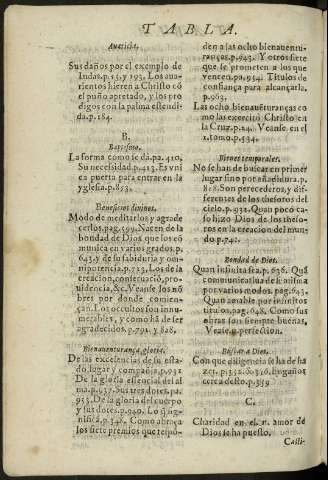 TABLA.
Auaricia.
Sus daños por el exemplo de
Iudas. p. 55. y 193. Los aua-
rientos hieren a Christo cō
el puño apretado, y los pro
digos con la palma estendi-
da. p. 184.
B.
Bautismo.
La forma como se da. pa. 410.
Su necesidad. p. 413. Es vni
ca puerta para entrar en la
yglesia. p. 853.
Beneficios diuinos.
Modo de meditarlos y agrade
cerlos. pag. 599. Nacen de la
bondad de Dios que los co
munica en varios grados. p.
643. y de su sabiduria y om-
nipotencia. p. 723. Los de la
creacion, conseruació, pro-
uidencia, &c. Veanse los nō
bres por donde comien-
çan. Los ocultos son innu-
merables, y como há de ser
agradecidos. p. 791. y 828.
Bienauenturança, gloria.
De las excelencias de su esta-
do, lugar y compañia. p. 932.
De la gloria essencial del al
ma. p. 937. Sus tres dotes. pa.
953. De la gloria del cuerpo
y sus dotes. p. 940. Lo q̃ sig-
nifica. p. 348. Como abraça
los siete premios que respō-
den a las ocho bienauentu-
ranças. p. 943. Y otros siete
que se prometen a los que
vencen. pa. 954. Titulos de
confiança para alcançarla.
p. 963.
Las ocho bienauēturanças co
mo las exercitó Christo en
la Cruz. p. 241. Veanse en el
1. tomo. p. 534.
Bienes temporales.
No se han de buscar en primer
lugar sino por añadidura. p.
828. Son perecederos, y dif
ferentes de los thesoros del
cielo. p. 932. Quan poco ca-
so hizo Dios de los theso-
ros en la creacion del mun-
do. p. 742.
Bondad de Dios.
Quan infinita sea. p. 636. Quā
comunicatiua de si misma
por varios modos. pag. 643.
Quan amable por infinitos
titulos. pag. 648. Como sus
obras son siempre buenas,
Vease, perfeccion.
Buscar a Dios.
Con que diligencia se ha de ha
zer. p. 352.
cerca desto. p. 359
C.
Charidad en el n. amor de
Dios se ha puesto.
Calli-